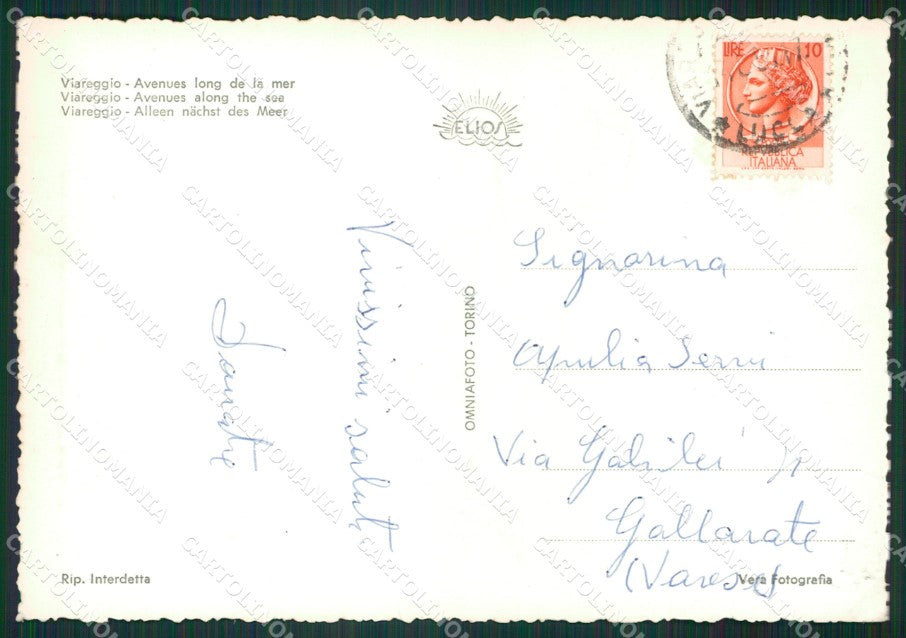 Viareggio - Avenues long de la mer
Viareggio - Avenues along the sea
Viareggio - Alleen nächst des Meer
ELIOS
LIRE 10
REPVBBLICA
ITALIANA
LUCCA
Vivissimi saluti
Donate
OMNIAFOTO - TORINO
Signorina
Apulia
Via Galilei
Gallarate
(Varese)
Rip. Interdetta
Vera Fotografia
CARTOLINOMANIA